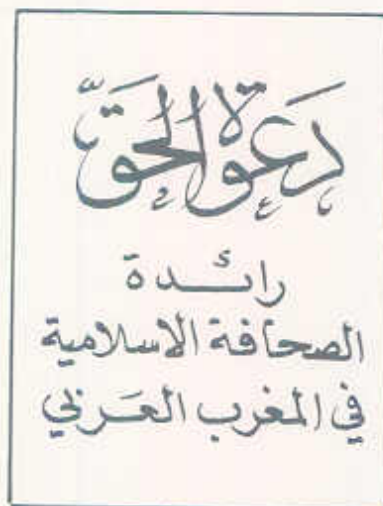 دعوة الحق
رائدة
الصحافة الإسلامية
في المغرب العربي